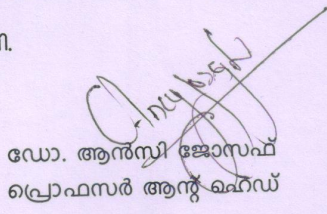 ഡോ. ആൻസി ജോസഫ്
പ്രൊഫസർ ആന്റ് ഹെഡ്